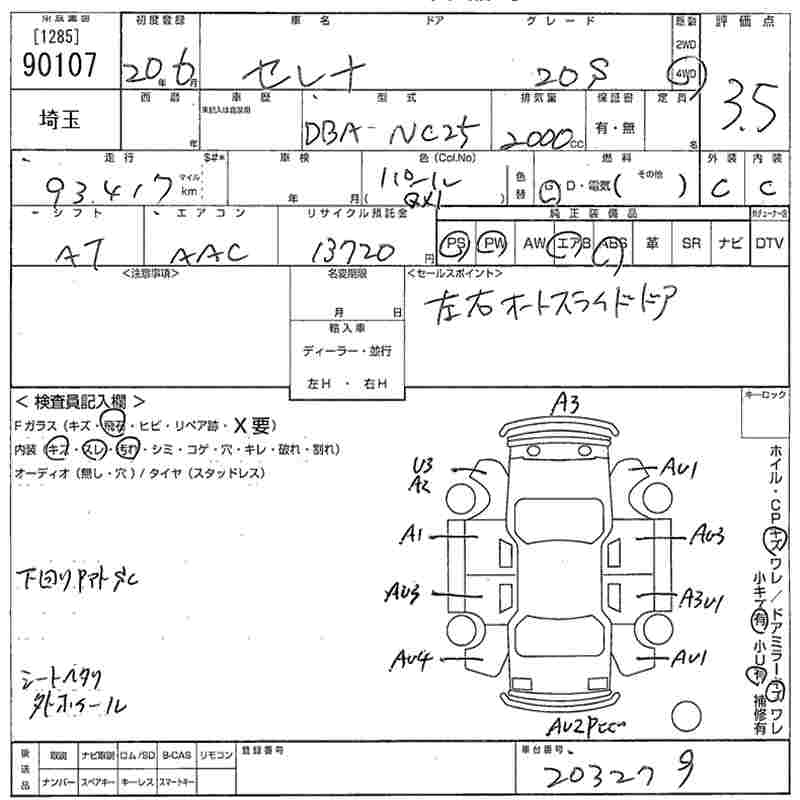 [1285]
90107
初度登録
20年6月
車名 ドア グレード
セレナ 20S
駆動
2WD
4WD
評価点
3.5
埼玉
西暦
年
車歴
未記入は自家用
型式
DBA-NC25
排気量
2000cc
保証書
有・無
定員
名
走行 $#*
93,417 マイル km
車検
年 月
色(Col.No)
パール
( QX1 )
色替
燃料
G D・電気( その他 )
外装
C
内装
C
シフト
AT
エアコン
AAC
リサイクル預託金
13720円
純正装備品
PS PW AW エアB ABS 革 SR ナビ DTV
<注意事項>
名変期限
月 日
輸入車
ディーラー・並行
左H ・ 右H
<セールスポイント>
左右オートスライドドア
< 検査員記入欄 >
Fガラス(キズ・飛石・ヒビ・リペア跡・X要)
内装(キズ・スレ・汚れ・シミ・コゲ・穴・キレ・破れ・割れ)
オーディオ(無し・穴)/タイヤ(スタッドレス)
下回り
シートヘタリ
外ホイール
キーロック
A3
U3
A2
AU1
A1
AU3
AU3
A3U1
AU4
AU1
ホイル・CPキズワレ/ドアミラーキズワレ
小キズ有 小U有 補修有
後送品
取説 ナビ取説 ロム/SD B-CAS リモコン
ナンバー スペアキー キーレス スマートキー
登録番号
車台番号
203279